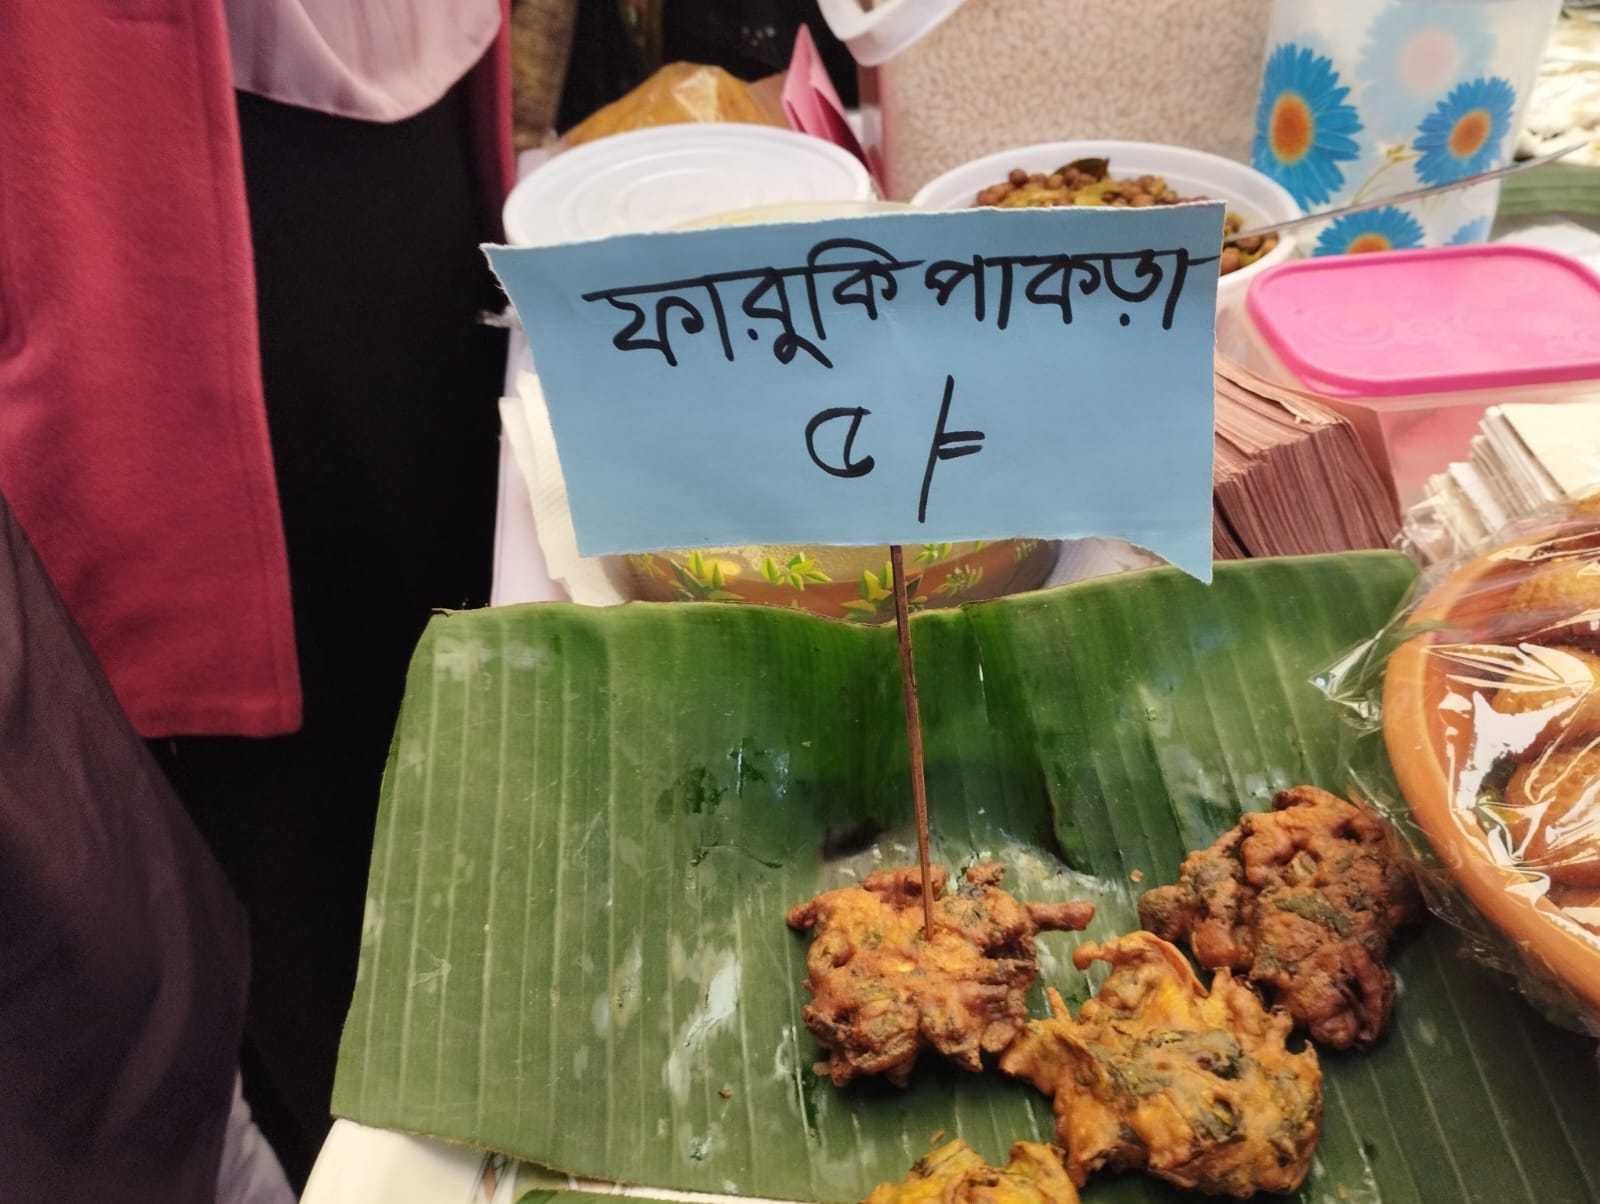 ফারুকি পাকড়া
৫/=